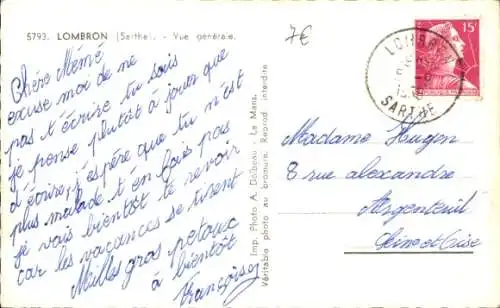 5793. LOMBRON (Sarthe). - Vue générale.
7€
Chère Mémé
excuse moi de ne
pas t'écrire tu sais
je pense plutôt à jouer que
d'écrire, j'espère que tu n'est
plus malade t'en fais pas
je vais bientôt te revoir
car les vacances se tirent
Milles gros
à bientôt
Françoise
Imp. Photo A. Dolbeau - Le Mans.
Véritable photo au bromure. Reprod interdite
15F
LOMBRON
SARTHE
Madame Hugen
8 rue alexandre
Argenteuil
Seine et Oise